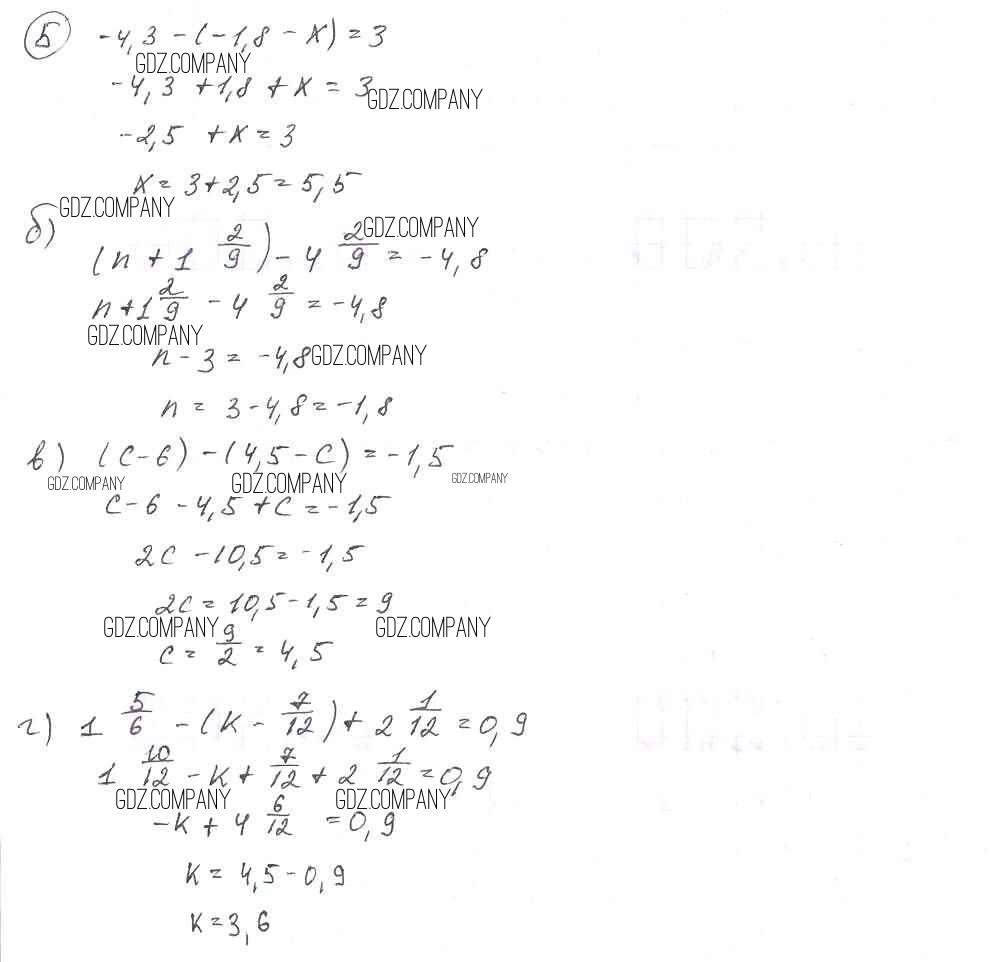 5 -4,3 - (-1,8 - x) = 3
GDZ.COMPANY
-4,3 + 1,8 + x = 3
GDZ.COMPANY
-2,5 + x = 3
x = 3 + 2,5 = 5,5
GDZ.COMPANY GDZ.COMPANY
б) (n + 1 2/9) - 4 2/9 = -4,8
n + 1 2/9 - 4 2/9 = -4,8
GDZ.COMPANY
n - 3 = -4,8
GDZ.COMPANY
n = 3 - 4,8 = -1,8
в) (c - 6) - (4,5 - c) = -1,5
GDZ.COMPANY GDZ.COMPANY GDZ.COMPANY
c - 6 - 4,5 + c = -1,5
2c - 10,5 = -1,5
2c = 10,5 - 1,5 = 9
GDZ.COMPANY GDZ.COMPANY
c = 9/2 = 4,5
г) 1 5/6 - (k - 7/12) + 2 1/12 = 0,9
1 10/12 - k + 7/12 + 2 1/12 = 0,9
GDZ.COMPANY GDZ.COMPANY
-k + 4 6/12 = 0,9
k = 4,5 - 0,9
k = 3,6